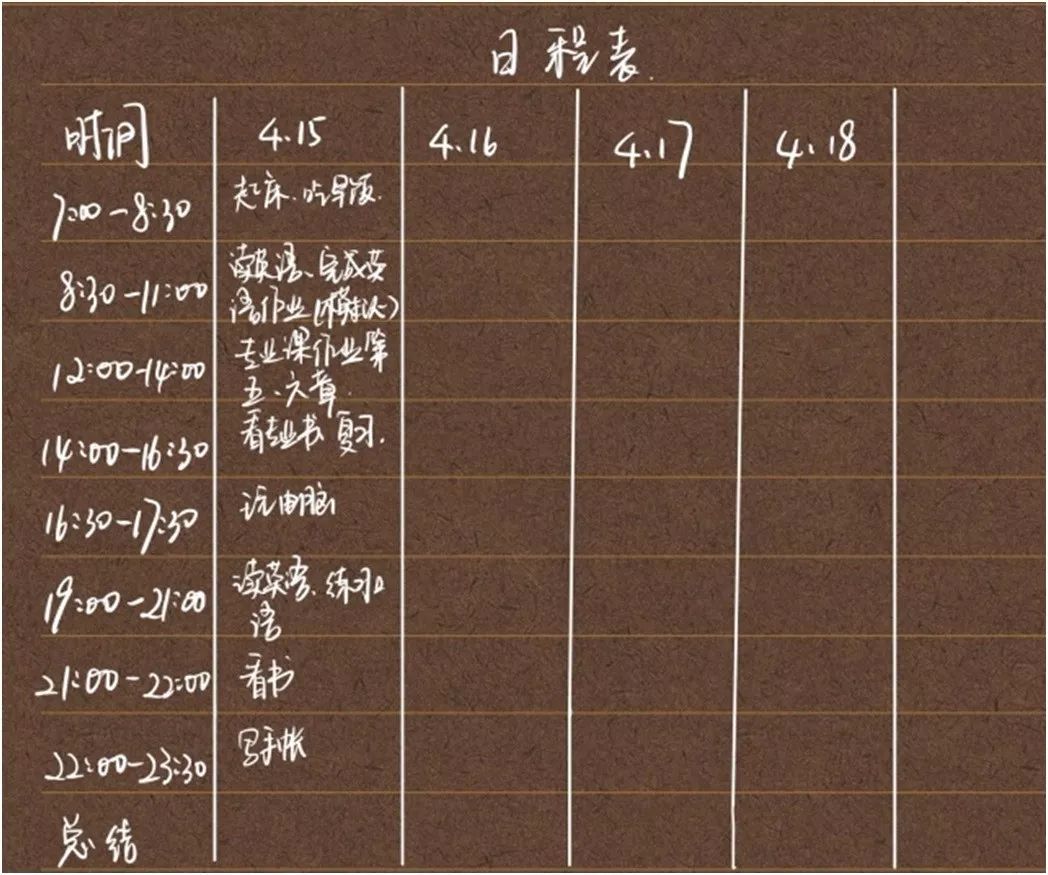 日程表
时间 4.15 4.16 4.17 4.18
7:00-8:30 起床、吃早饭.
8:30-11:00 读英语、完成英
语作业(模拟)
12:00-14:00 专业课作业第
五、六章.
14:00-16:30 看专业书 复习.
16:30-17:30 玩电脑
19:00-21:00 读英语、练习口
语
21:00-22:00 看书
22:00-23:30 写手帐
总结